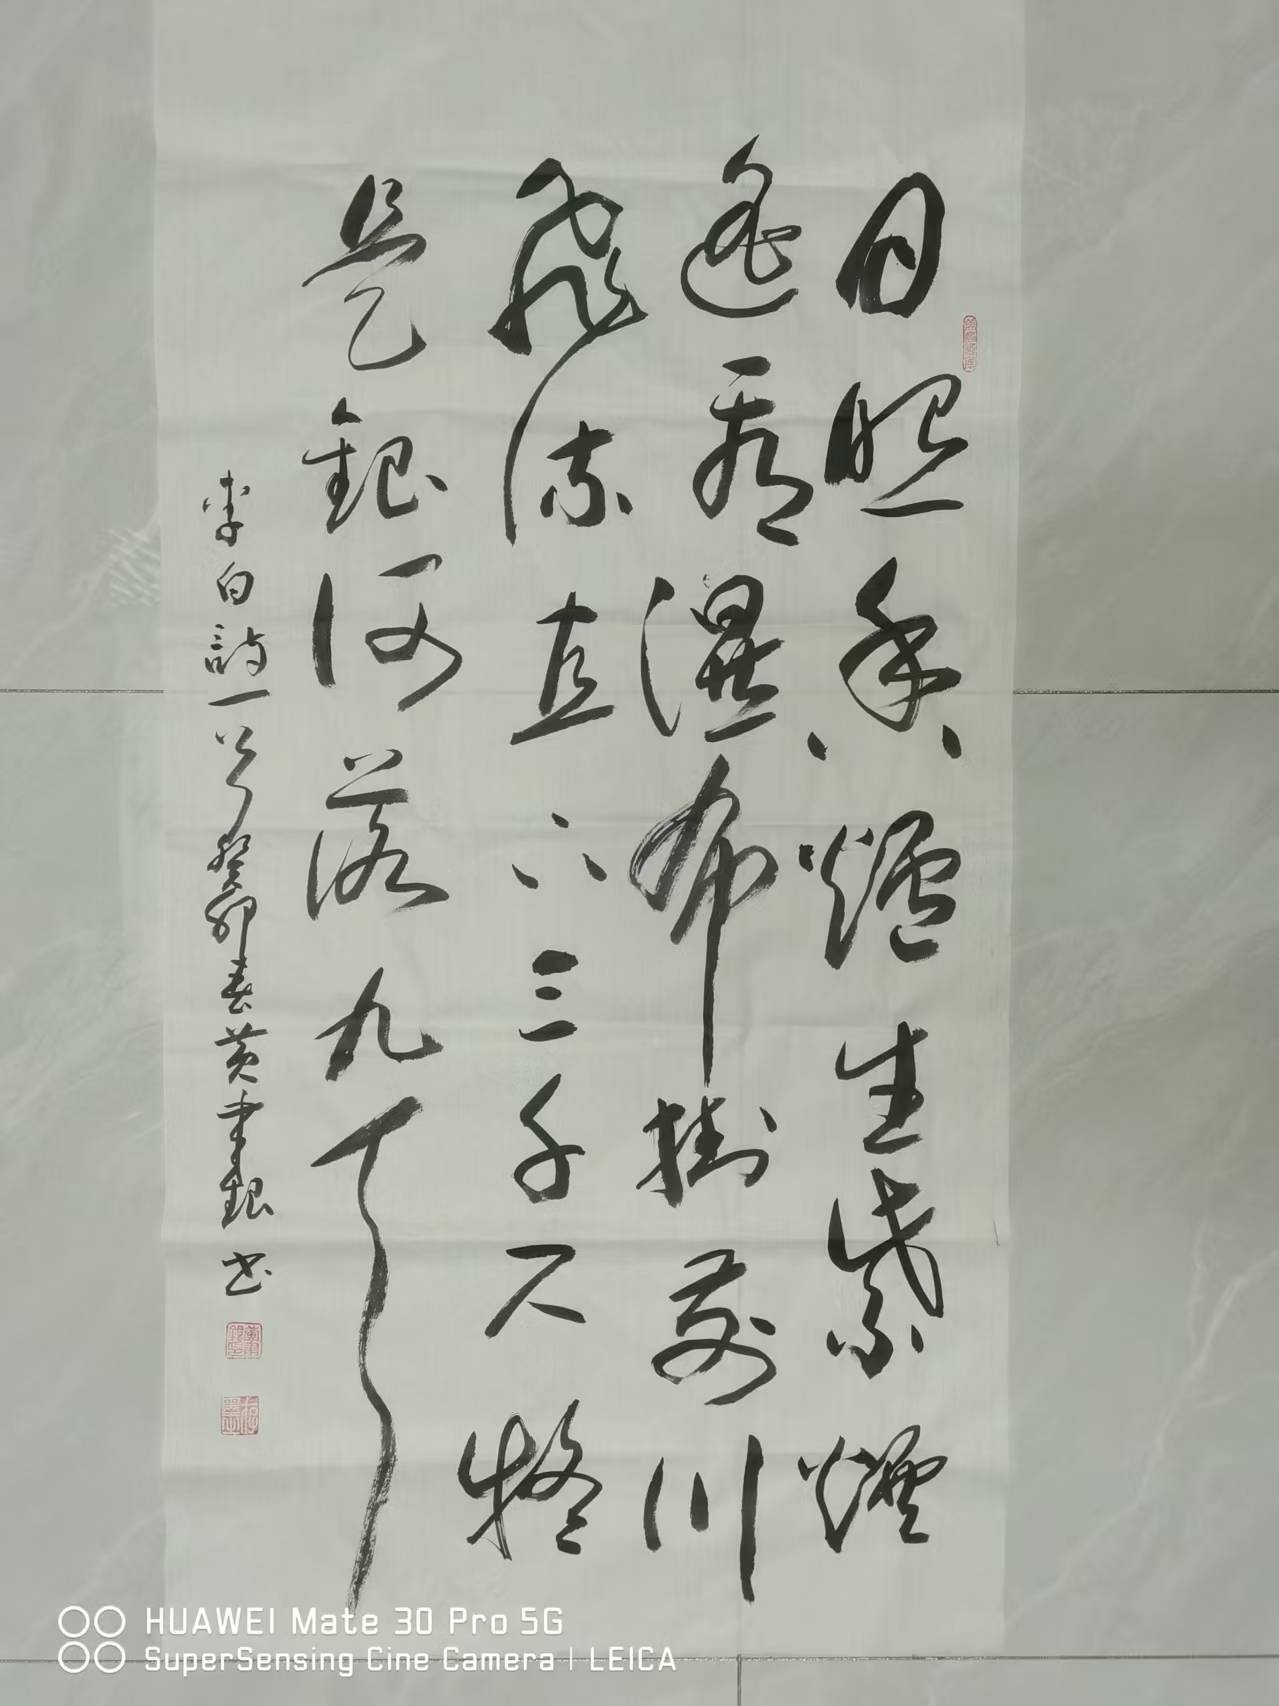 日照香爐生紫煙
遙看瀑布掛前川
飛流直下三千尺疑
是銀河落九天
李白詩一首癸卯春黃銀书
HUAWEI Mate 30 Pro 5G
SuperSensing Cine Camera | LEICA